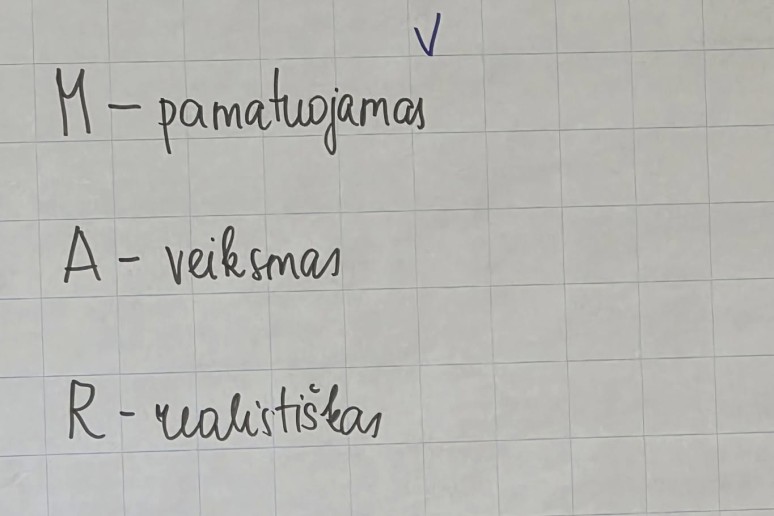 V
M - pamatuojamas
A - veiksmas
R - realistiškas